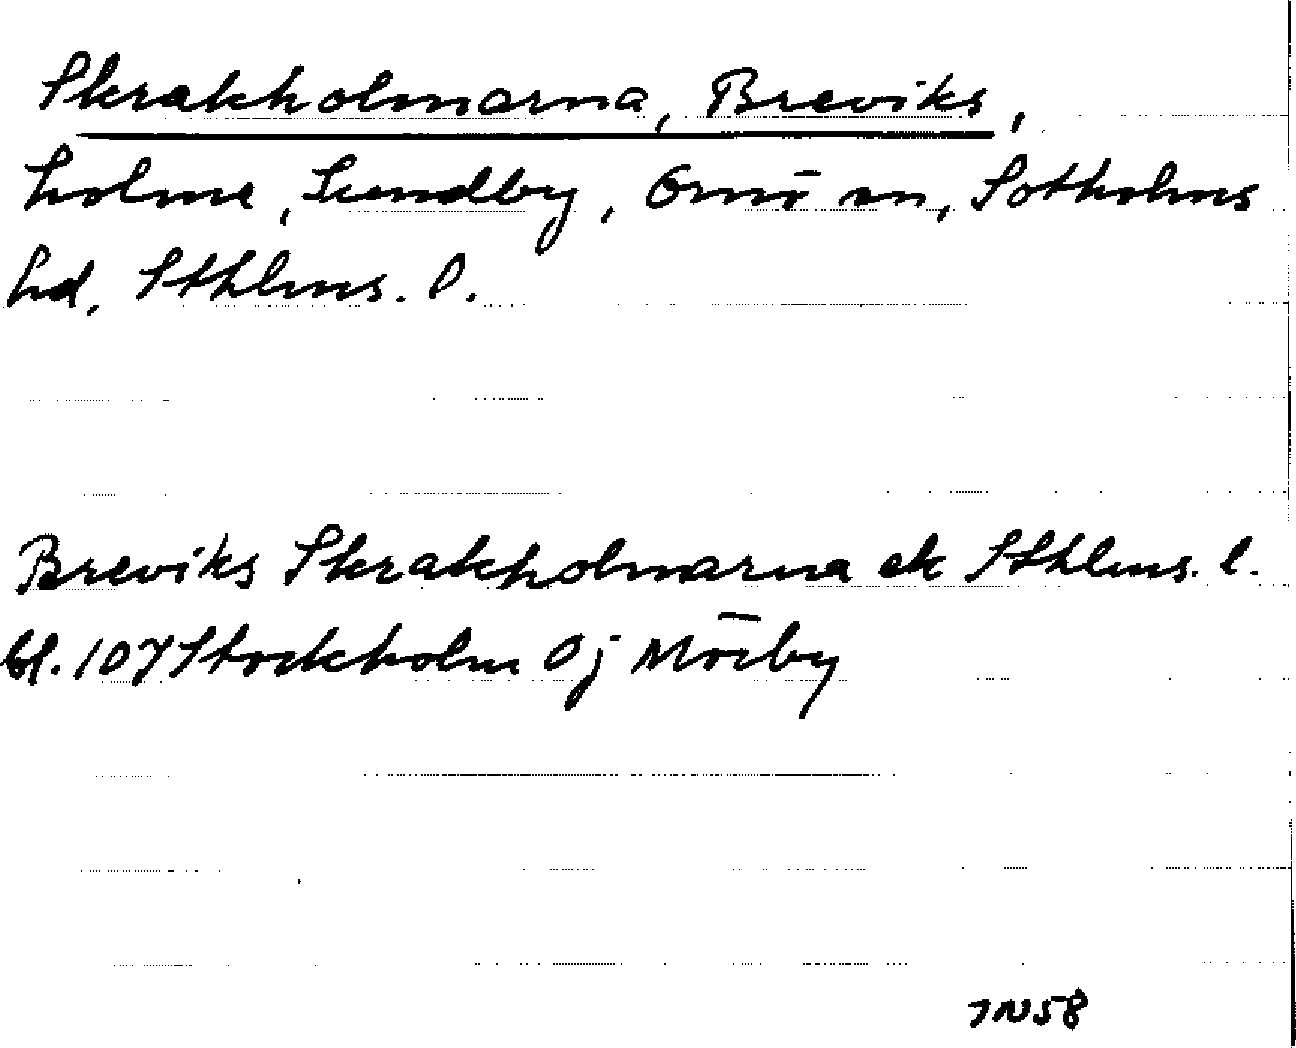 Skrakholmarna, Breviks,
holme, Sundby, Ornö sn, Sotholms
hd, Sthlms. l.
Breviks Skrakholmarna ek Sthlms. l.
bl. 107 Stockholm Oj Mörby
7N58